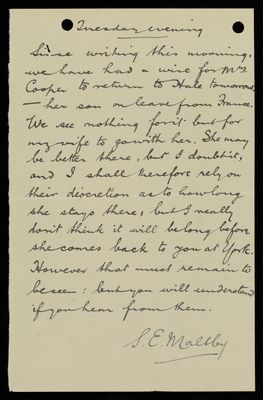 Tuesday evening
Since writing this morning,
we have had a wire for Mrs
Cooper to return to Hale tomorrow,
— her son on leave from France.
We see nothing for it but for
my wife to go with her. She may
be better there, but I doubt it,
and I shall therefore rely on
their discretion as to how long
she stays there; but I really
don't think it will be long before
she comes back to you at York.
However that must remain to
be seen: but you will understand
if you hear from them.
S. E. Maltby